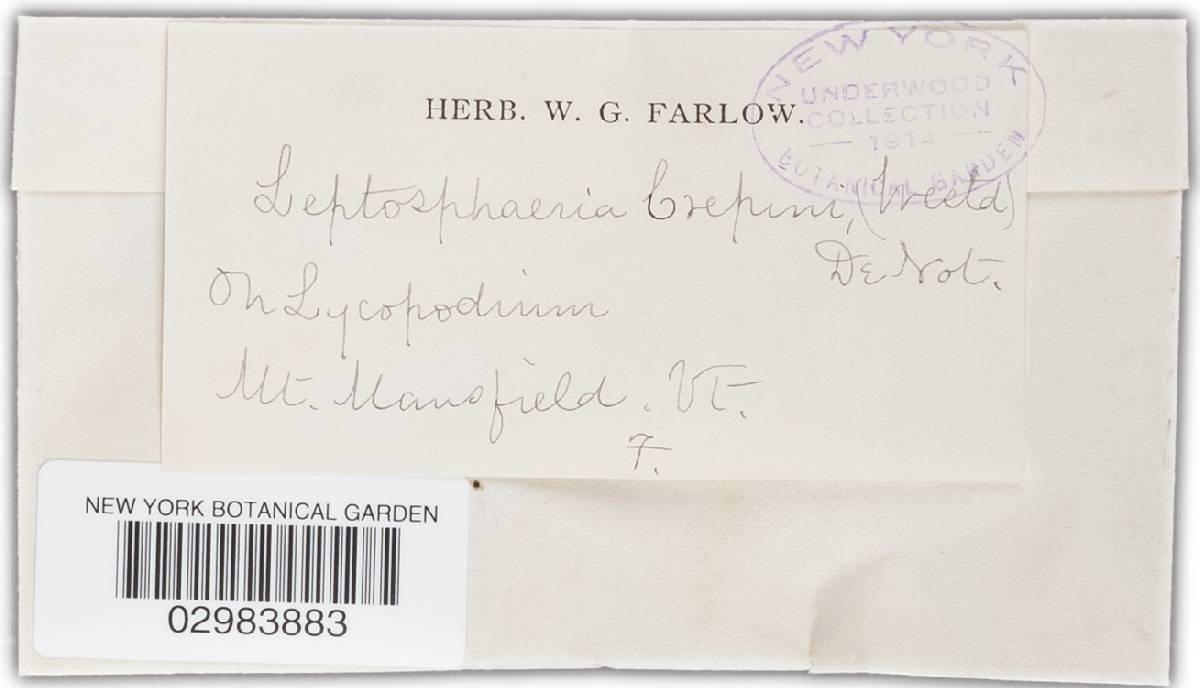 HERB. W. G. FARLOW.
NEW YORK
UNDERWOOD
COLLECTION
— 1914 —
BOTANICAL GARDEN
Leptosphaeria Crepini, (Westd)
De Not.
On Lycopodium
Mt. Mansfield. Vt.
F.
NEW YORK BOTANICAL GARDEN
02983883